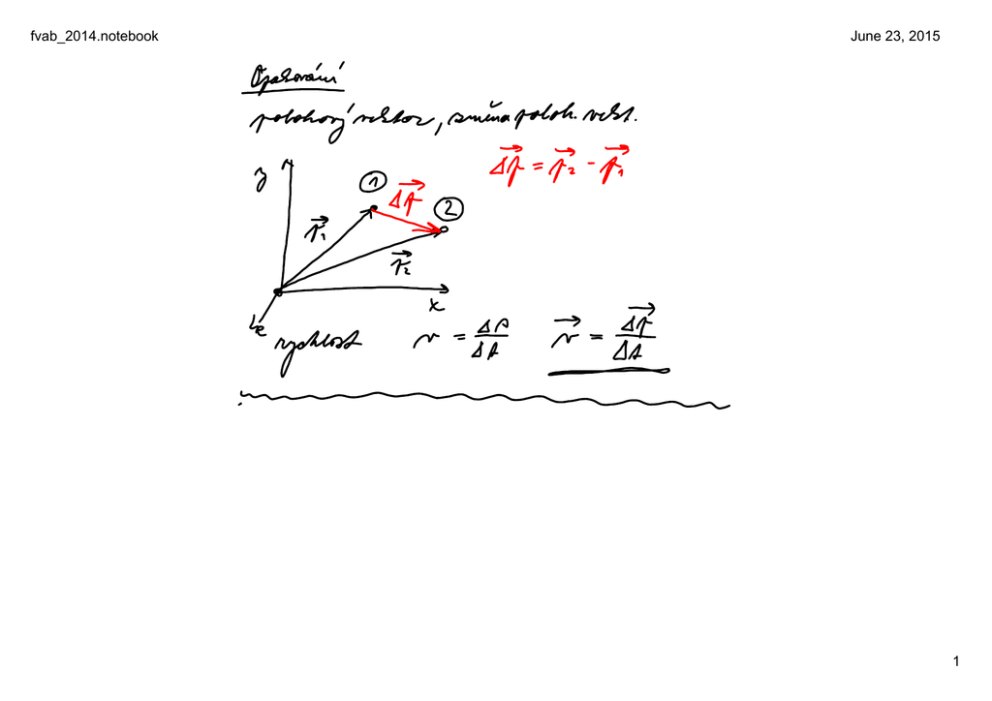 fvab_2014.notebook June 23, 2015
Opakování
polohový vektor, změna poloh. vekt.
Δr⃗ = r⃗₂ - r⃗₁
y ① Δr⃗ ②
r⃗₁
r⃗₂
x
z
rychlost v = Δs/Δt v⃗ = Δr⃗/Δt
1